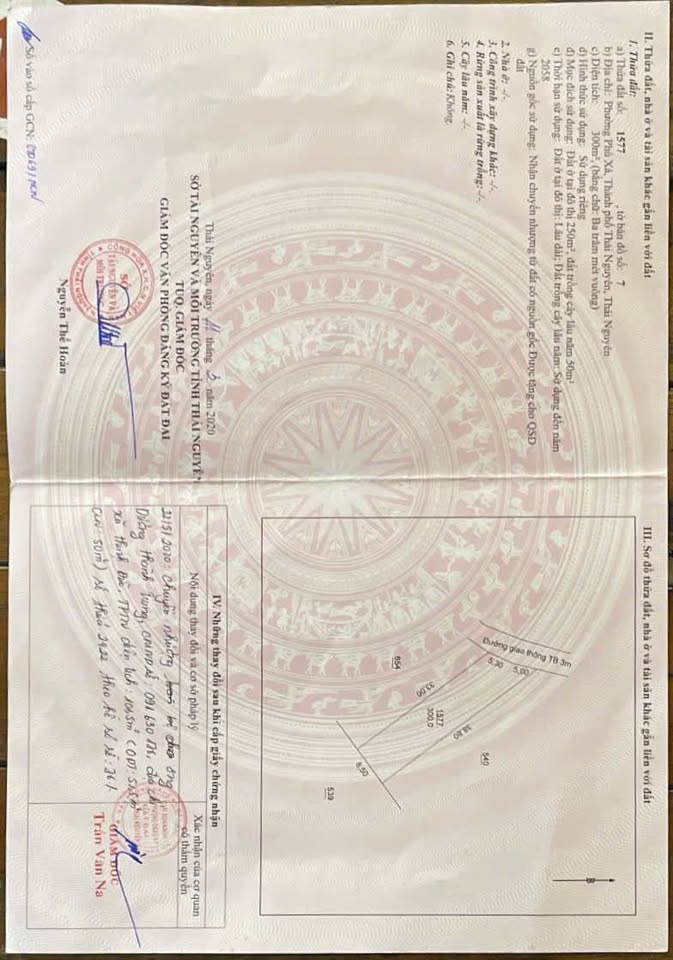 II. Thửa đất, nhà ở và tài sản khác gắn liền với đất
1. Thửa đất:
a) Thửa đất số: 1577 , tờ bản đồ số: 7
b) Địa chỉ: Phường Phú Xá, Thành phố Thái Nguyên, Thái Nguyên
c) Diện tích: 300m², (bằng chữ: Ba trăm mét vuông)
d) Hình thức sử dụng: Sử dụng riêng
đ) Mục đích sử dụng: Đất ở tại đô thị 250m², đất trồng cây lâu năm 50m²
e) Thời hạn sử dụng: Đất ở tại đô thị: Lâu dài; Đất trồng cây lâu năm: Sử dụng đến năm
2058
g) Nguồn gốc sử dụng: Nhận chuyển nhượng từ đất có nguồn gốc Được tặng cho QSD
đất
2. Nhà ở: -/-
3. Công trình xây dựng khác: -/-
4. Rừng sản xuất là rừng trồng: -/-
5. Cây lâu năm: -/-
6. Ghi chú: Không
Thái Nguyên, ngày 11 tháng 3 năm 2020
SỞ TÀI NGUYÊN VÀ MÔI TRƯỜNG TỈNH THÁI NGUYÊN
TUQ. GIÁM ĐỐC
GIÁM ĐỐC VĂN PHÒNG ĐĂNG KÝ ĐẤT ĐAI
SỞ
TÀI NGUYÊN VÀ
Nguyễn Thế Hoàn
Số vào sổ cấp GCN:
III. Sơ đồ thửa đất, nhà ở và tài sản khác gắn liền với đất
B
Đường giao thông TB 3m
5,30
5,00
554
33,00
1577
300.0
38,80
540
8,50
539
IV. Những thay đổi sau khi cấp giấy chứng nhận
Nội dung thay đổi và cơ sở pháp lý
Xác nhận của cơ quan
có thẩm quyền
22/5/2020: Chuyển nhượng cho ông
Dương Thành Trung, CMND số 091630126, địa chỉ
xã Thịnh Đức, TPTN diện tích: 104,5m²
50m²) số thửa 2422 theo hồ sơ số: 361.
GIÁM ĐỐC
Trần Văn Na